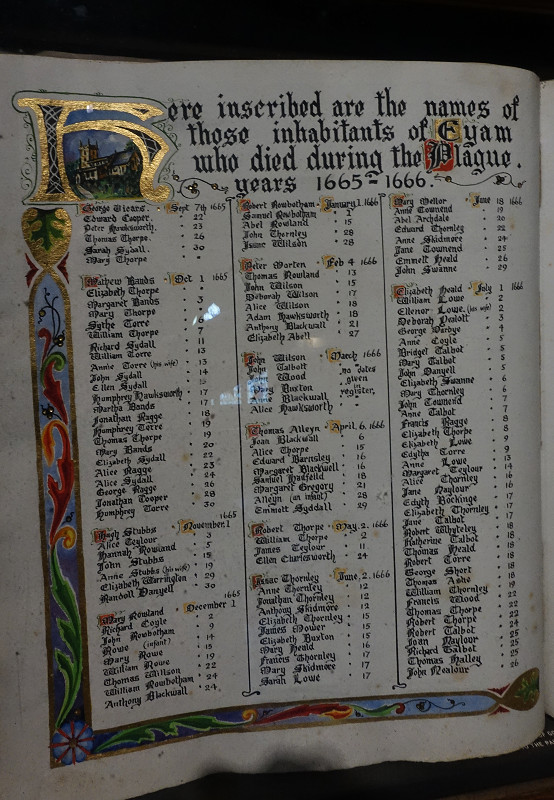 Here inscribed are the names of
those inhabitants of Eyam
who died during the Plague.
years 1665-1666.
George Vicars. Sept 7th 1665
Edward Cooper. 22
Peter Hawksworth. 23
Thomas Thorpe. 26
Sarah Sydall. 30
Mary Thorpe
Mathew Bands Oct 1 1665
Elizabeth Thorpe
Margaret Bands 3
Mary Thorpe
Sythe Torre
William Thorpe 7
Richard Sydall 11
William Torre 13
Annie Torre (his wife) 13
John Sydall 14
Ellen Sydall
Humphrey Hawksworth 17
Martha Bands 17
Jonathan Ragge 18
Humphrey Torre 19
Thomas Thorpe 19
Mary Bands 20
Elizabeth Sydall 22
Alice Ragge 23
Alice Sydall 24
George Ragge 26
Jonathan Cooper 28
Humphrey Torre 30
1665
Hugh Stubbs November 1
Alice Teylour 3
Hannah Rowland 5
John Stubbs 15
Anne Stubbs (his wife) 19
Elizabeth Warrington 29
Randoll Danyell 30
1665
Mary Rowland December 1
Richard Coyle 2
John Rowbotham 9
Rowe (infant) 14
Mary Rowe 15
William Rowe 19
Thomas Willson 22
William Rowbotham 24
Anthony Blackwall 24
Robert Rowbotham January 1. 1666
Samuel Rowbotham 1
Abel Rowland 15
John Thornley 28
Isaac Wilson 28
Peter Morten Feb 4 1666
Thomas Rowland 13
John Wilson 15
Deborah Wilson 17
Alice Wilson 18
Adam Hawksworth 18
Anthony Blackwall 21
Elizabeth Abell 27
John Wilson March 1666
John Talbott no dates
John Wood given
Mary Buxton register.
Anne Blackwall
Alice Hawksworth
Thomas Alleyn April. 6. 1666
Joan Blackwall 6
Alice Thorpe 15
Edward Barnsley 16
Margaret Blackwall 16
Samuel Hadfield 18
Margaret Gregory 21
Alleyn (an infant) 28
Emmott Syddall 29
Robert Thorpe May. 2. 1666
William Thorpe 2
James Teylour 11
Ellen Charlesworth 24
Isaac Thornley June. 2. 1666
Anne Thornley 12
Jonathan Thornley 12
Anthony Skidmore 12
Elizabeth Thornley 15
James Mower 15
Elizabeth Buxton 15
Mary Heald 16
Francis Thornley 17
Mary Skidmore 17
Sarah Lowe 17
Mary Mellor June 18 1666
Anne Townend 19
Abel Archdale 20
Edward Thornley 22
Anne Skidmore 24
Jane Townend 25
Emmott Heald 26
John Swanne 29
Elizabeth Heald July 1 1666
William Lowe 2
Ellenor Lowe (his wife) 2
Deborah Ealott 3
George Darbye 4
Anne Coyle 5
Bridget Talbot 5
Mary Talbot 5
John Danyell 5
Elizabeth Swanne 6
Mary Thornley 6
John Townend 7
Anne Talbot 7
Francis Ragge 8
Elizabeth Thorpe 8
Elizabeth Lowe 9
Edytha Torre 9
Anne Lowe 13
Margaret Teylour 14
Alice Thornley 16
Jane Naylour 16
Edyth Barkinge 17
Elizabeth Thornley 17
Jane Talbot 17
Robert Whyteley 18
Katherine Talbot 18
Thomas Heald 18
Robert Torre 18
George Short 18
Thomas Ashe 18
William Thornley 19
Francis Wood 22
Thomas Thorpe 22
Robert Thorpe 22
Robert Talbot 24
Joan Naylour 25
Richard Talbot 25
Thomas Halley 25
John Nealour 26